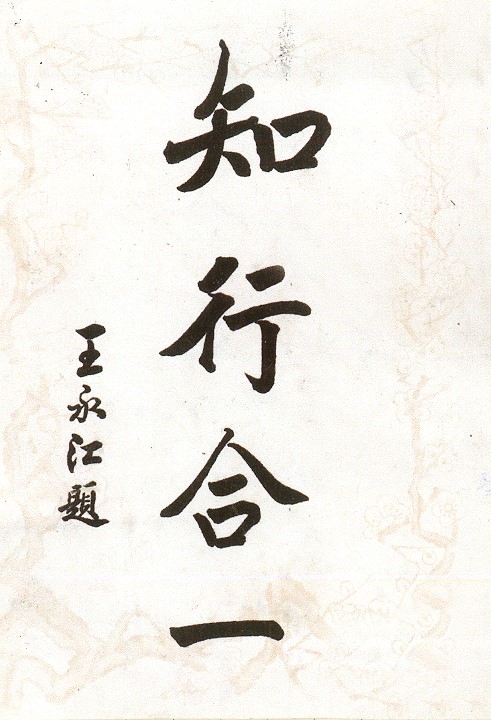 知行合一
王永江題